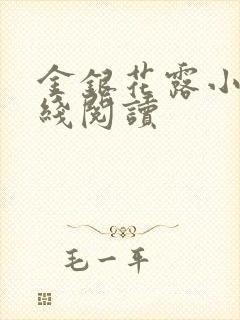 金銀花露小
綫閱讀
毛一平